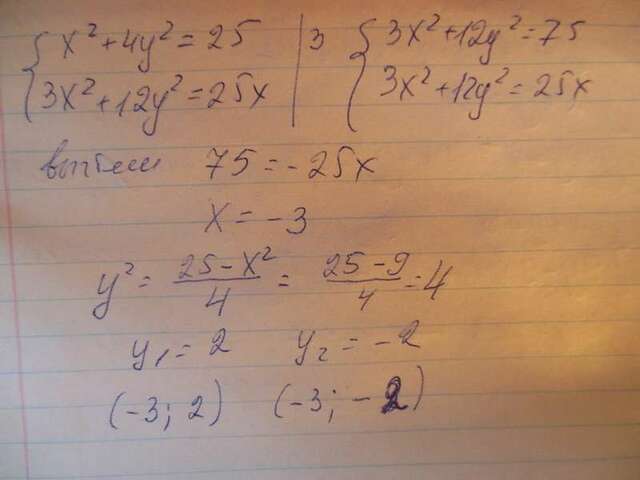 { x² + 4y² = 25 | 3 { 3x² + 12y² = 75
3x² + 12y² = 25x 3x² + 12y² = 25x
вычтем 75 = - 25x
x = -3
y² = (25 - x²)/4 = (25 - 9)/4 = 4
y₁ = 2 y₂ = -2
(-3; 2) (-3; -2)